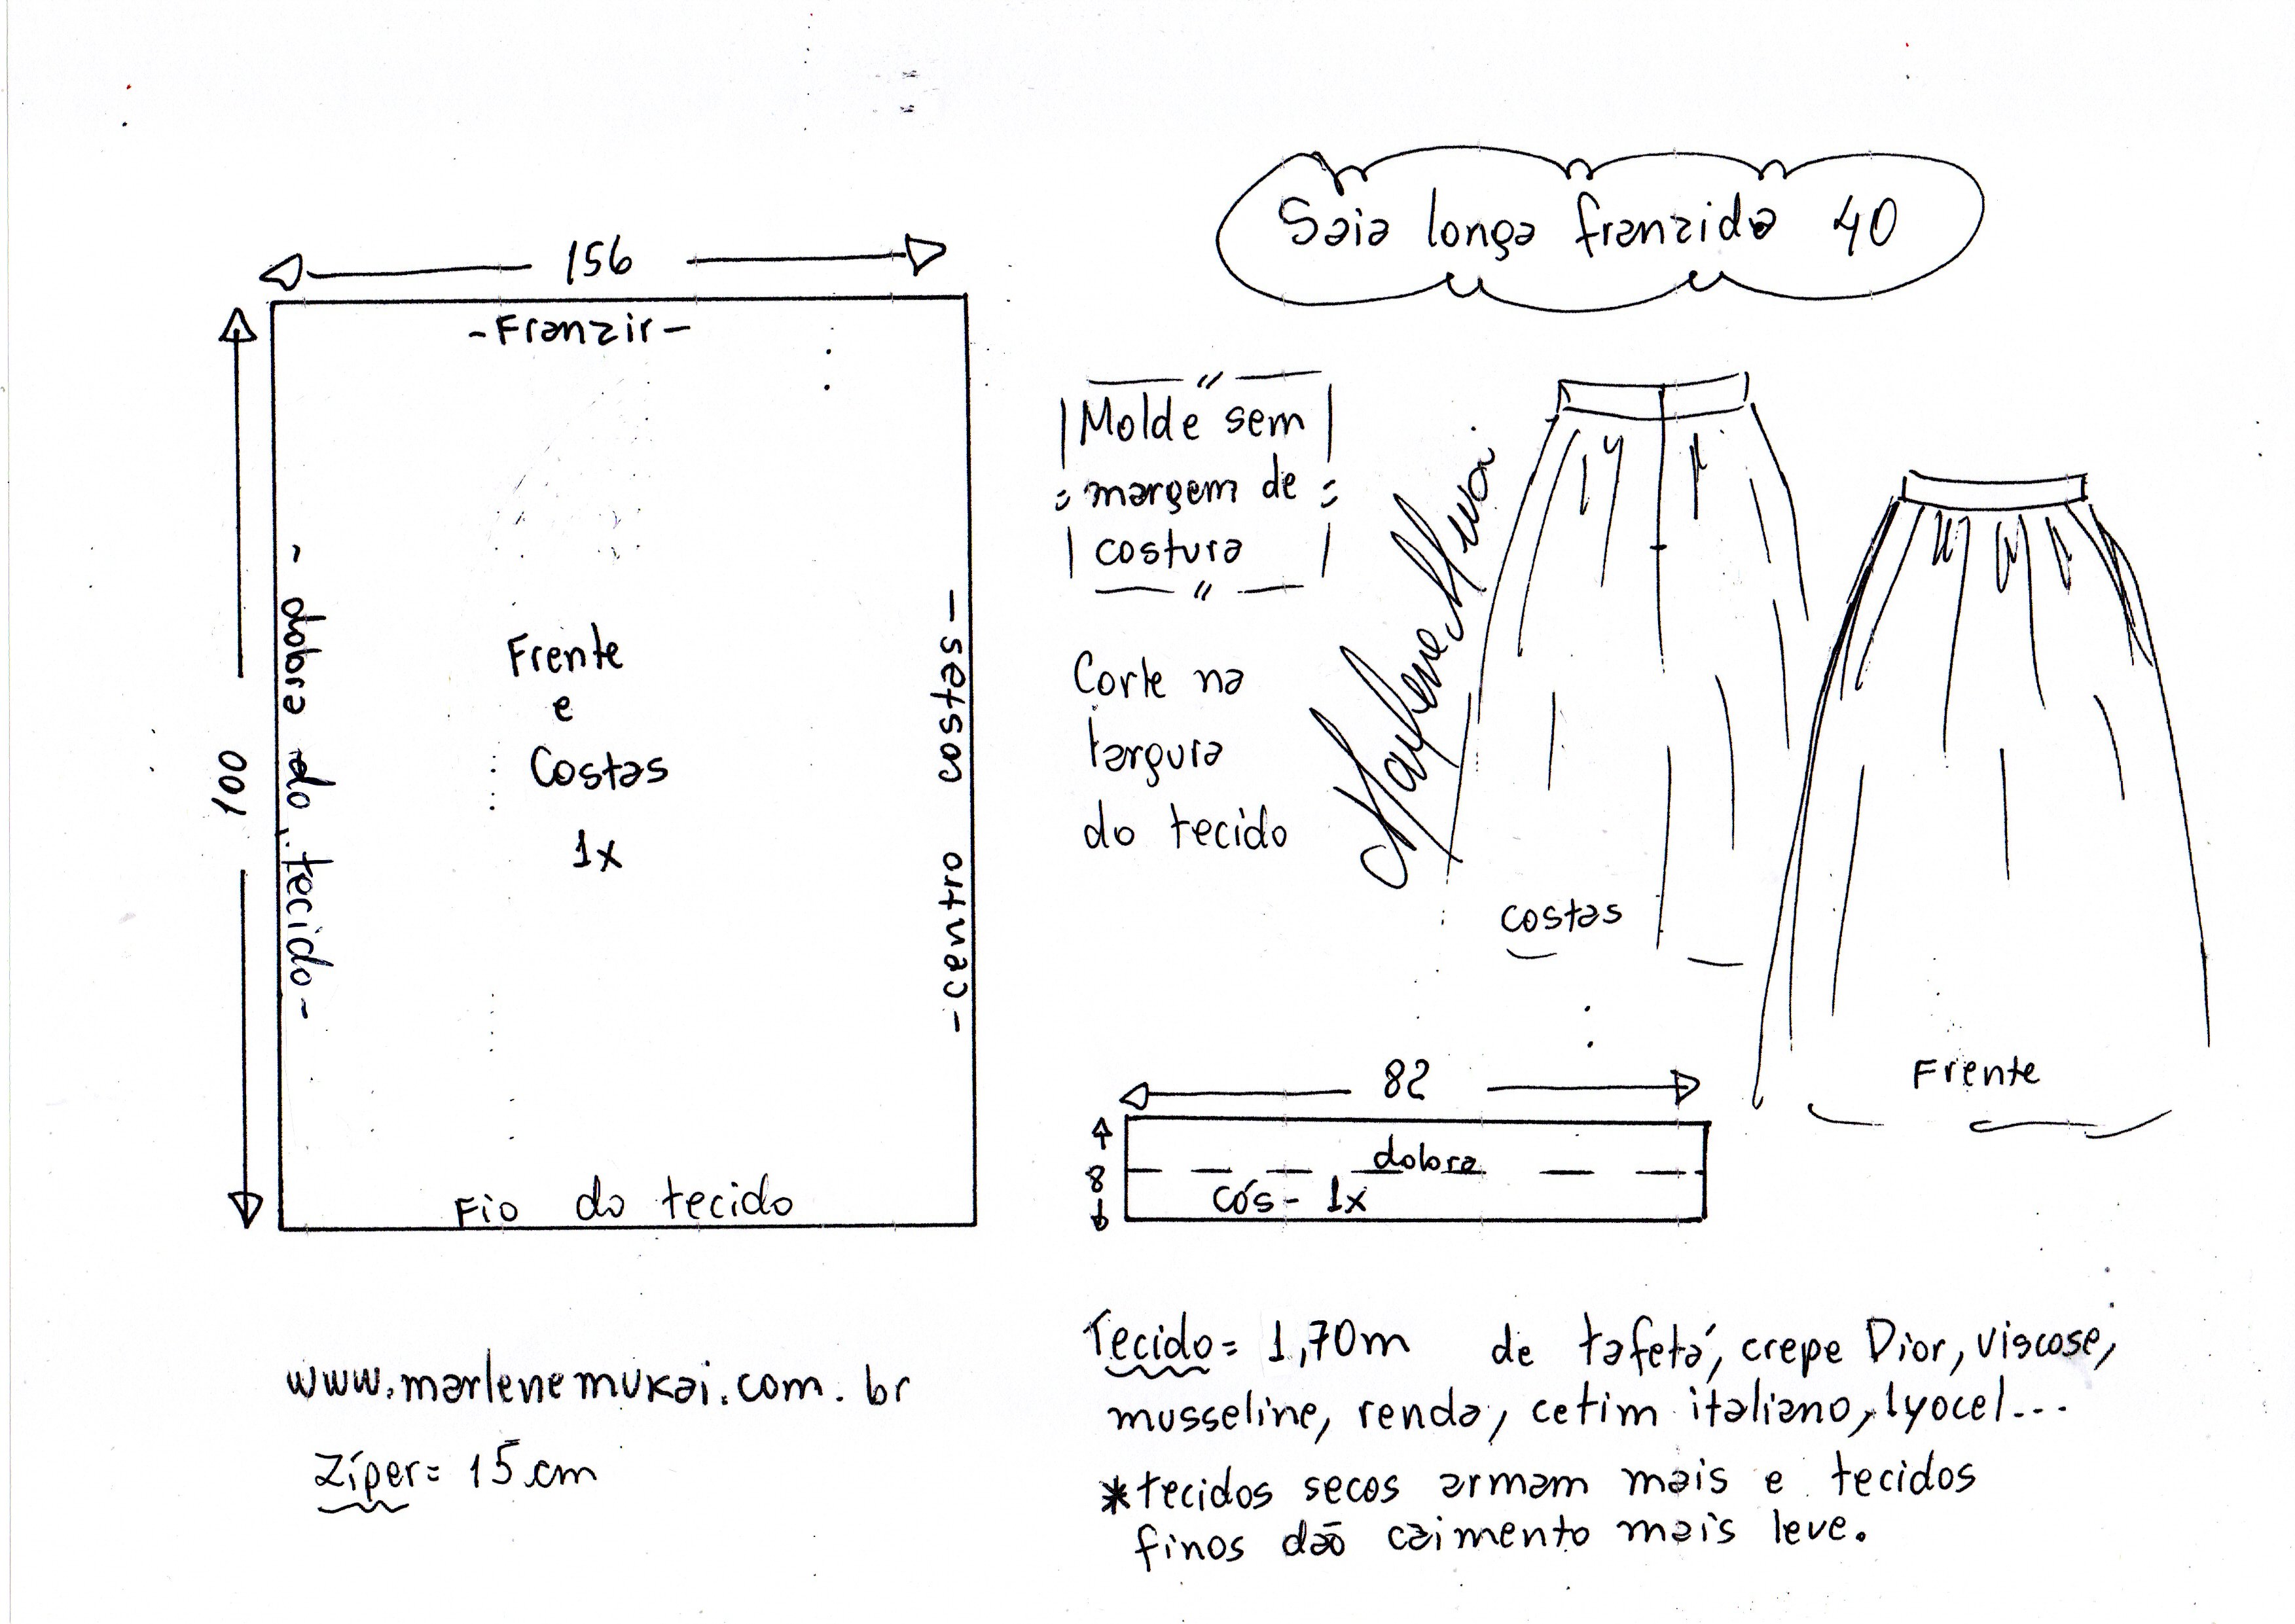 Saia longa franzida 40
156
-Franzir-
100
- dobra do tecido-
Frente
e
Costas
1x
-centro costas-
Fio do tecido
Molde sem
margem de
costura
Corte na
largura
do tecido
costas
Frente
82
8
dobra
cós- 1x
www.marlenemukai.com.br
Zíper= 15cm
Tecido= 1,70m de tafetá, crepe Dior, viscose,
musseline, renda, cetim italiano, lyocel...
*tecidos secos armam mais e tecidos
finos dão caimento mais leve.